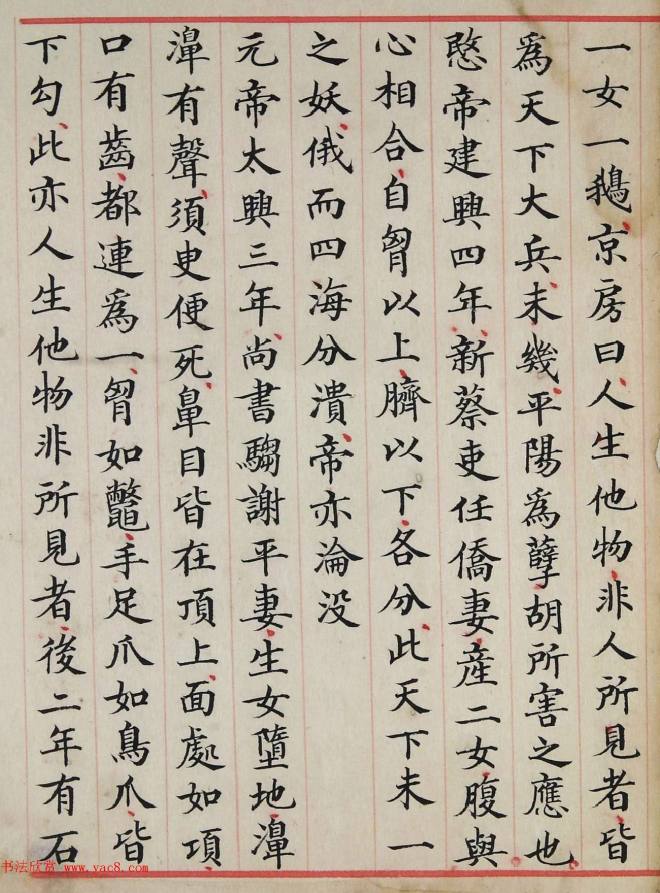 一女一鵝京房曰人生他物非人所見者皆
爲天下大兵末幾平陽爲孽胡所害之應也
愍帝建興四年新蔡吏任僑妻產二女腹與
心相合自胷以上臍以下各分此天下未一
之妖俄而四海分潰帝亦淪没
元帝太興三年尚書騶謝平妻生女墮地濞
濞有聲須吏便死鼻目皆在頂上面處如項
口有齒都連爲一胷如鼈手足爪如鳥爪皆
下勾此亦人生他物非所見者後二年有石
书法欣赏 www.yac8.com